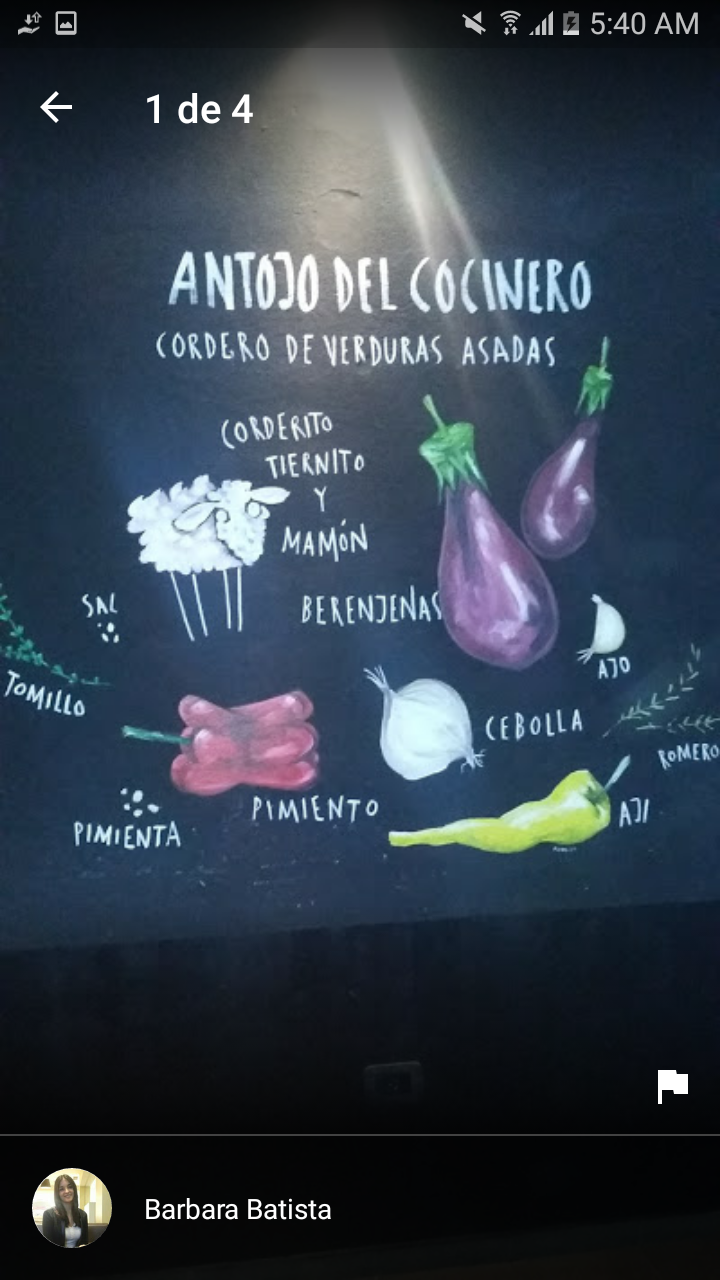 5:40 AM
1 de 4
ANTOJO DEL COCINERO
CORDERO DE VERDURAS ASADAS
CORDERITO
TIERNITO
Y
MAMÓN
SAL
BERENJENAS
AJO
TOMILLO
CEBOLLA
ROMERO
PIMIENTO
AJI
PIMIENTA
Barbara Batista